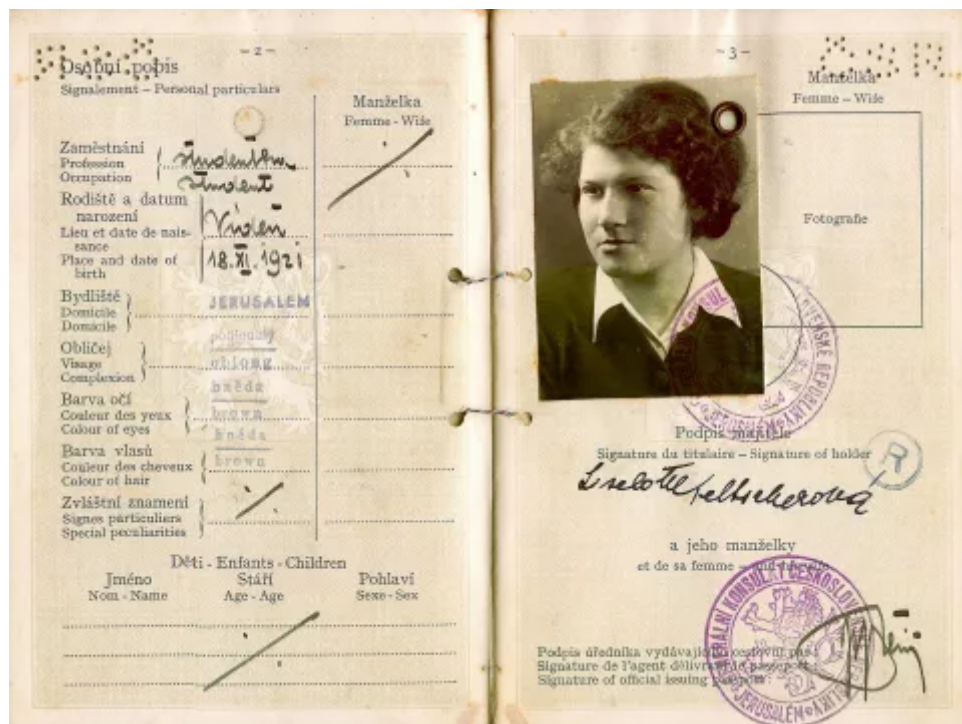 - 2 -
Osobní popis
Signalement - Personal particulars
Manželka
Femme - Wife
Zaměstnání
Profession
Occupation
študent
Rodiště a datum
narození
Lieu et date de nais-
sance
Place and date of
birth
Vídeň
18. XI. 1921
Bydliště
Domicile
Domicile
JERUSALEM
Obličej
Visage
Complexion
podlouhlý
oblong
Barva očí
Couleur des yeux
Colour of eyes
hnědá
brown
Barva vlasů
Couleur des cheveux
Colour of hair
hnědá
brown
Zvláštní znamení
Signes particuliers
Special peculiarities
Děti - Enfants - Children
Jméno
Nom - Name
Stáří
Age - Age
Pohlaví
Sexe - Sex
- 3 -
Manželka
Femme - Wife
Fotografie
Podpis majitele
Signature du titulaire - Signature of holder
R
a jeho manželky
et de sa femme
Podpis úředníka
Signature de l'agent
Signature of official issuing
JERUSALÉM